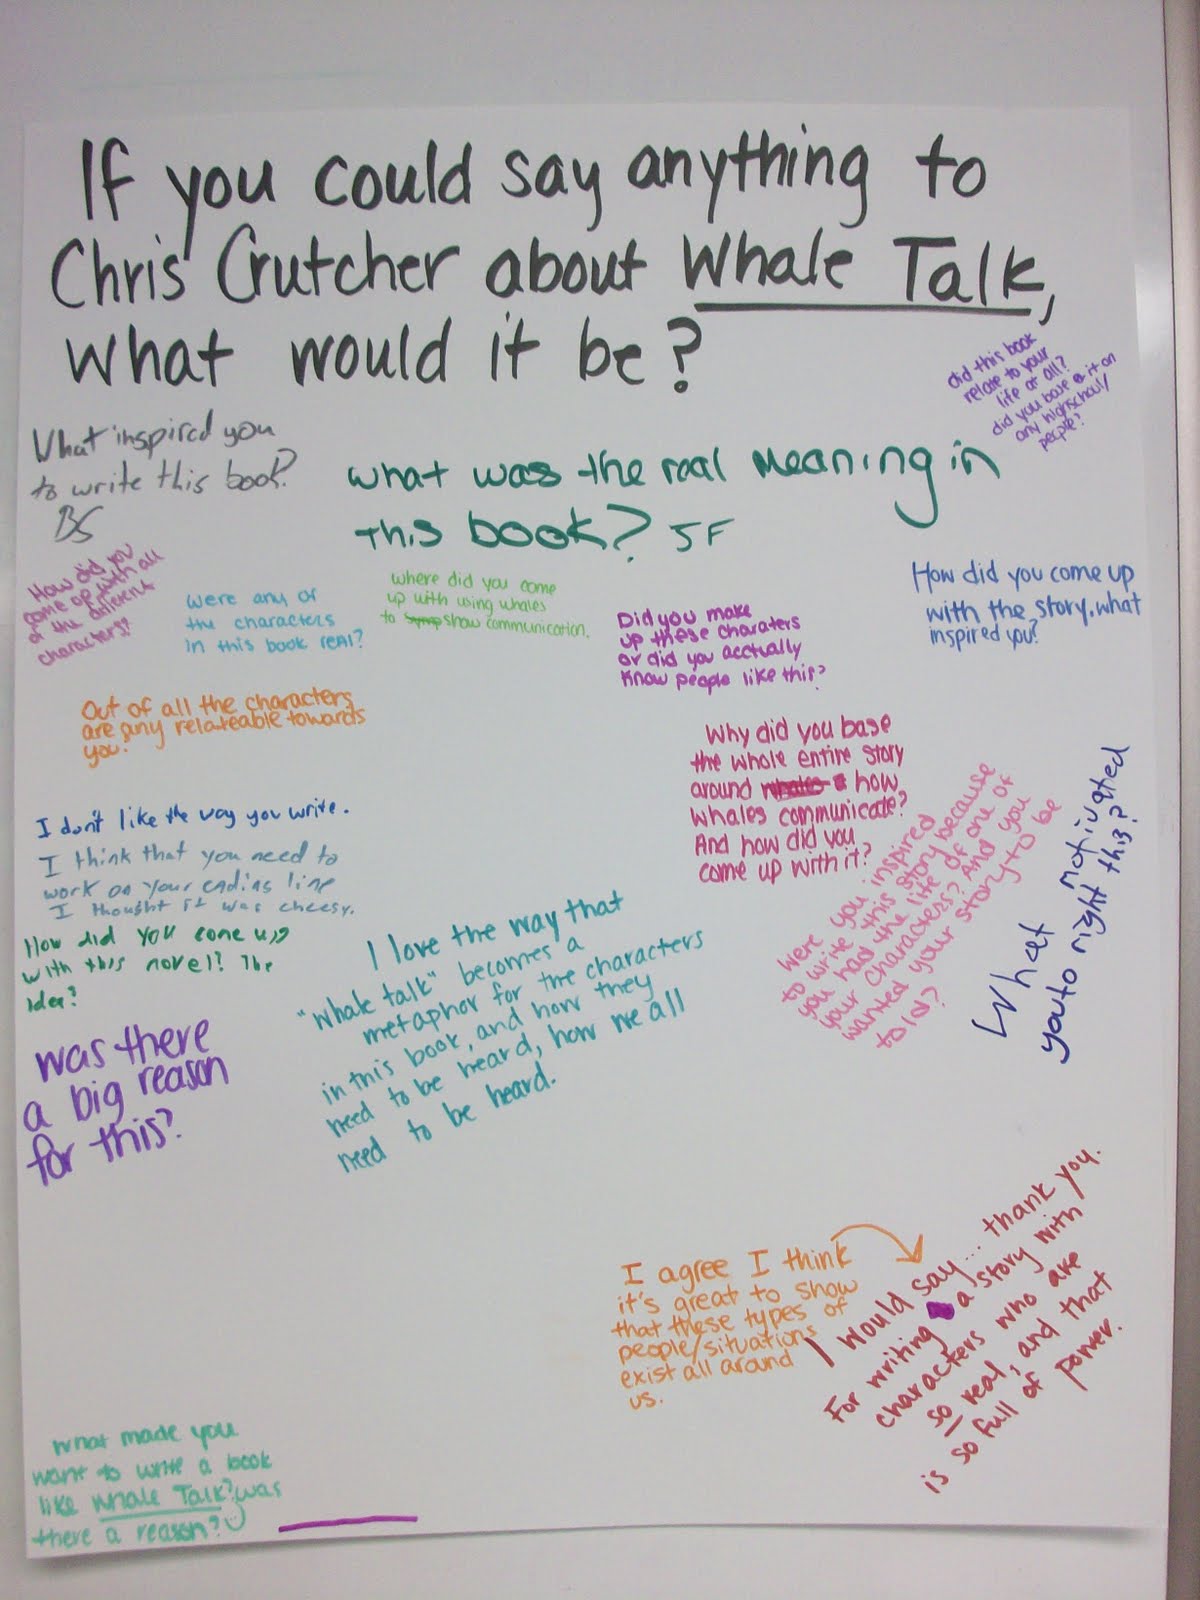 If you could say anything to
Chris Crutcher about Whale Talk,
what would it be?
did this book
relate to your
life at all?
did you base it on
any highschool/
people?
What inspired you
to write this book?
BS
what was the real meaning in
this book? JF
How did you
come up with all
of the different
characters?
were any of
the characters
in this book real?
where did you come
up with using whales
to show communication.
Did you make
up these charaters
or did you acctually
know people like this?
How did you come up
with the story, what
inspired you?
Out of all the characters
are any relateable towards
you?
Why did you base
the whole entire story
around whales how
whales communicate?
And how did you
come up with it?
were you inspired
to write this story because
you had the life of one of
your characters? And you
wanted your story to be
told?
What motivated
you to right this?
I don't like the way you write.
I think that you need to
work on your ending line
I thought it was cheesy.
How did you come up
with this novel? The
idea?
I love the way that
"whale talk" becomes a
metaphor for the characters
in this book, and how they
need to be heard, how we all
need to be heard.
was there
a big reason
for this?
I agree I think
it's great to show
that these types of
people/situations
exist all around
us.
I would say... thank you.
For writing a story with
characters who are
so real, and that
is so full of power.
what made you
want to write a book
like Whale Talk? was
there a reason?